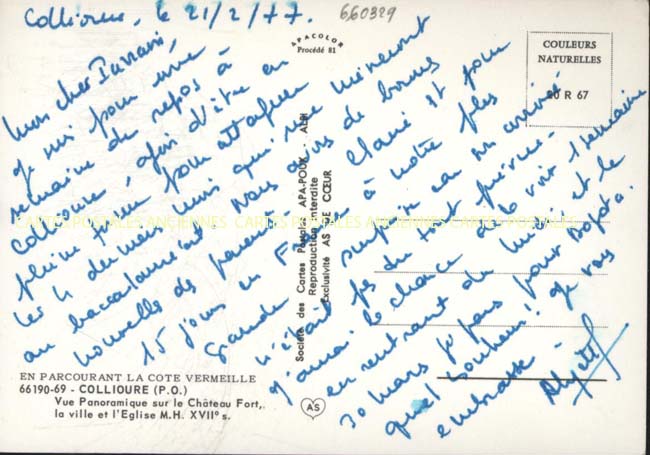 Collioure, le 21/2/77.
660329
APACOLOR
Procédé 81
COULEURS
NATURELLES
20 R 67
Mon cher
Je suis pour une
semaine de repos à
Collioure, afin d'être en
pleine forme pour attaquer
les 4 derniers mois qui me mèneront
au baccalauréat. Nous avons de bonnes
nouvelles de parents. Claire est pour
15 jours en à notre plus
grande surprise car son arrivée
n'était pas du tout prévue.
J'aurai la chance de la voir 1 semaine
en rentrant du et le
30 mars je pars pour Bogota.
quel bonheur! Je vous
embrasse -
Société des Cartes Postales APA-POUX - ALBI
Reproduction Interdite
Exclusivité AS DE CŒUR
CARTES POSTALES ANCIENNES CARTES POSTALES ANCIENNES CARTES POSTALES
EN PARCOURANT LA COTE VERMEILLE
66190-69 - COLLIOURE (P.O.)
Vue Panoramique sur le Château Fort,
la ville et l'Eglise M.H. XVII° s.
AS